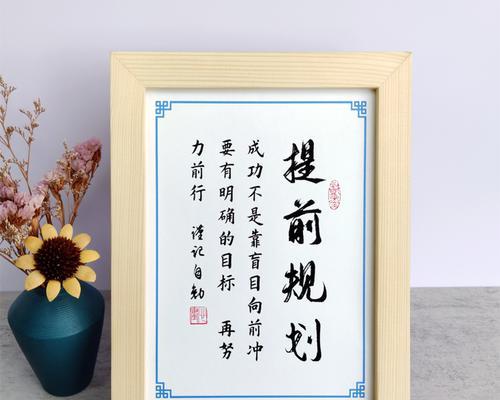 提前规划
成功不是靠盲目向前冲
要有明确的目标 再努
力前行 谨记自勉